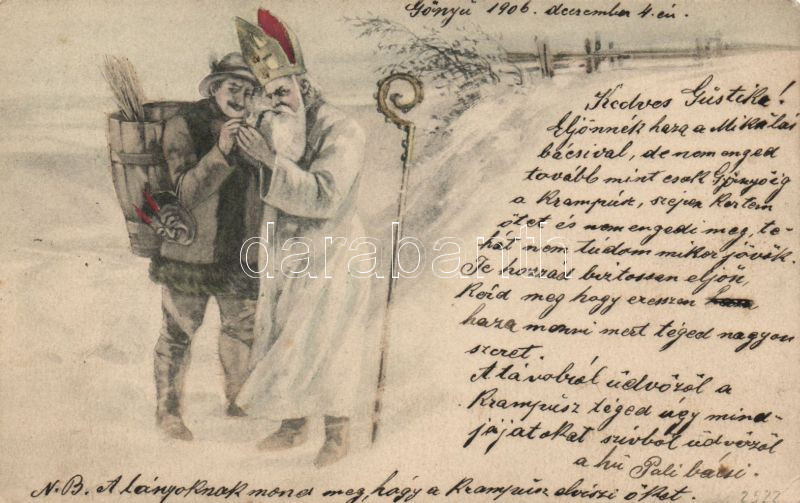 Gönyü 1906. december 4.-én.
Kedves Gustika!
Eljönnék haza a Mikulás
bácsival, de nem enged
tovább mint csak Gönyőig
a Krampúsz, szépen kértem
őtet és nem engedi meg, te-
hát nem tudom mikor jövök.
Te hozzád biztossan eljön,
Kérd meg hogy eresszen
haza menni mert téged nagyon
szeret.
A távolról üdvözöl a
Krampúsz téged úgy mind-
jájatokat szívből üdvözöl
a hű Pali bácsi.
N.B. A lányoknak mond meg, hogy a Krampusz elviszi őket.
darabanth.com